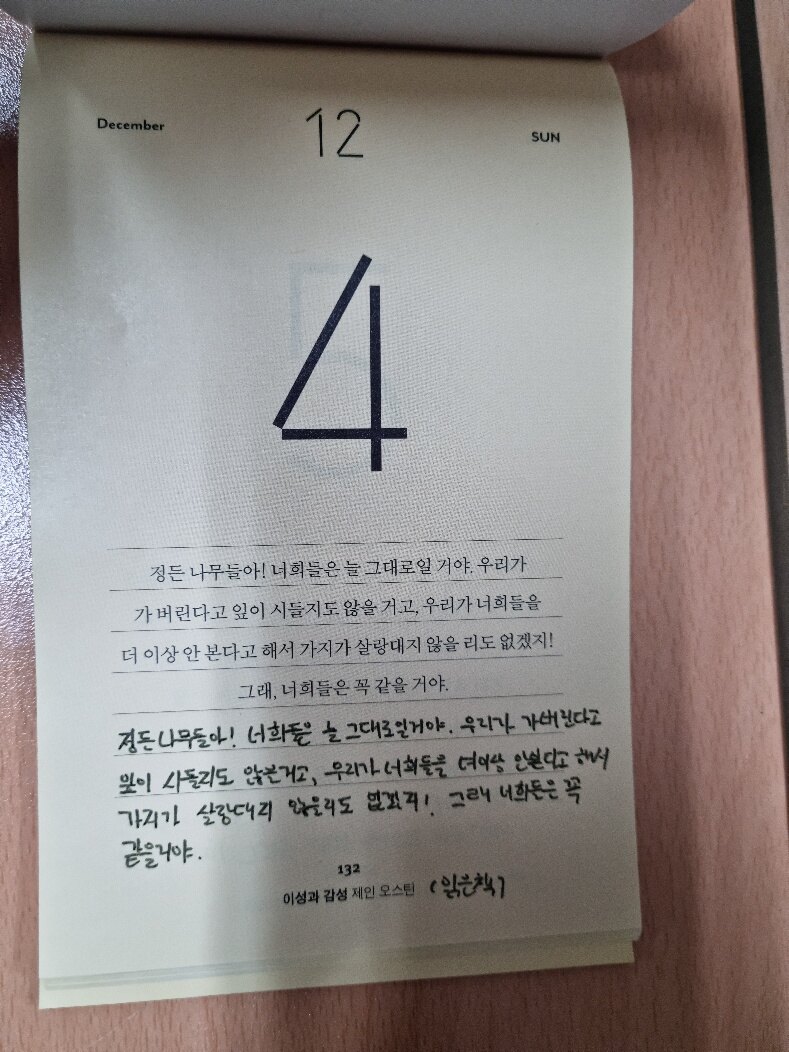 December
12
SUN
4
정든 나무들아! 너희들은 늘 그대로일 거야. 우리가
가 버린다고 잎이 시들지도 않을 거고, 우리가 너희들을
더 이상 안 본다고 해서 가지가 살랑대지 않을 리도 없겠지!
그래, 너희들은 꼭 같을 거야.
정든나무들아! 너희들은 늘 그대로일거야. 우리가 가버린다고
잎이 시들지도 않을거고, 우리가 너희들을 더이상 안본다고 해서
가지가 살랑대지 않을리도 없겠지! 그래 너희들은 꼭
같을거야.
132
이성과 감성 제인 오스틴 (읽은책)